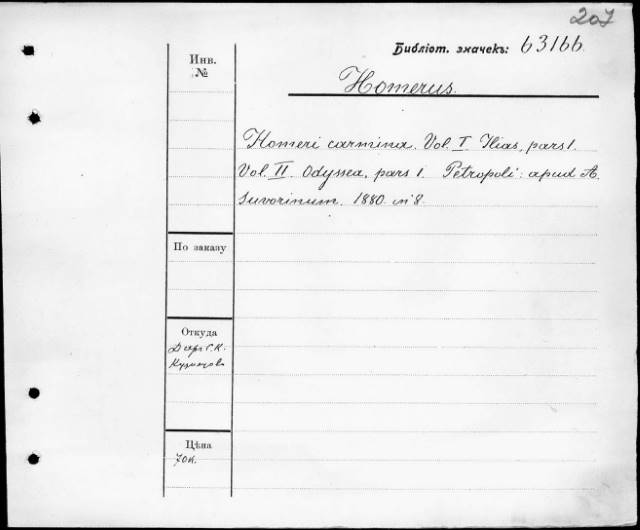 207
Библiот. значекъ: 63166
Инв.
№
Homerus.
Homeri carmina. Vol. I Ilias, pars 1.
Vol. II. Odyssea, pars 1. Petropoli: apud A.
Suvorinum. 1880. in 8.
По заказу
Откуда
Даръ Г. К.
Кузнецова
Цѣна
70к.